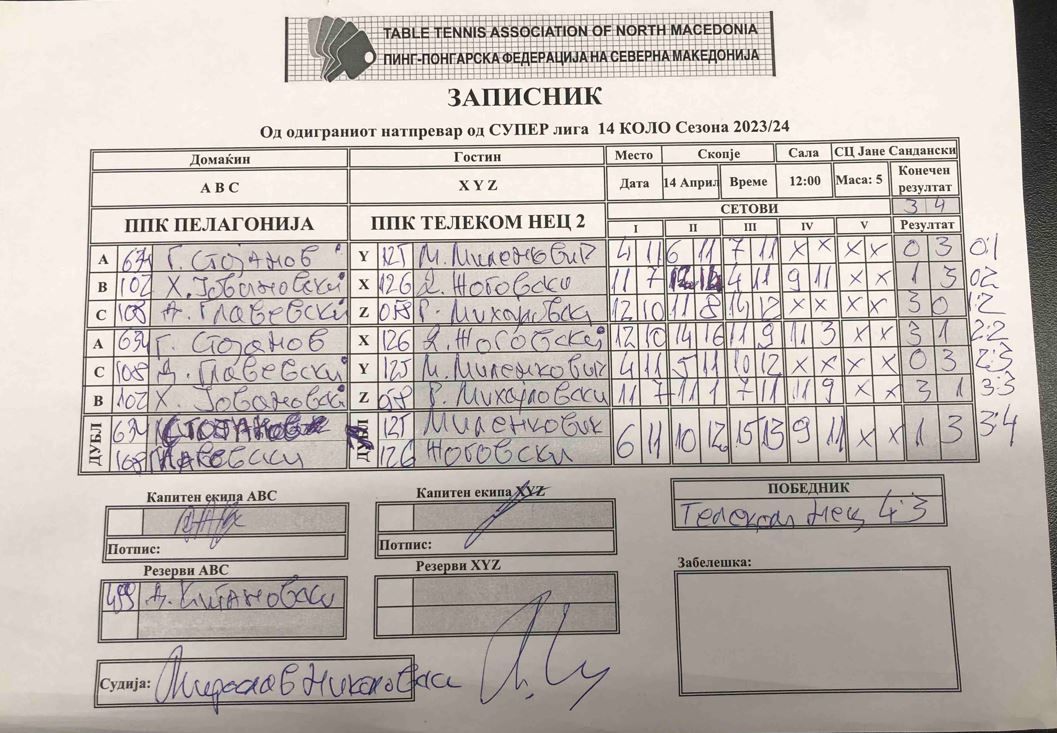 TABLE TENNIS ASSOCIATION OF NORTH MACEDONIA
ПИНГ-ПОНГАРСКА ФЕДЕРАЦИЈА НА СЕВЕРНА МАКЕДОНИЈА
ЗАПИСНИК
Од одиграниот натпревар од СУПЕР лига 14 КОЛО Сезона 2023/24
Домаќин Гостин Место Скопје Сала СЦ Јане Сандански
A B C X Y Z Дата 14 Април Време 12:00 Маса: 5 Конечен резултат
3 4
ППК ПЕЛАГОНИЈА ППК ТЕЛЕКОМ НЕЦ 2 СЕТОВИ
I II III IV V Резултат
A 634 Г. Стојанов Y 125 М. Миленковиќ 4 11 6 11 7 11 x x x x 0 3 0:1
B 102 Х. Јовановски X 126 Ноговски 11 7 4 11 9 11 x x 1 3 0:2
C 108 Д. Главевски Z 058 Р. Михајловски 12 10 11 8 12 x x x x 3 0 1:2
A 634 Г. Стојанов X 126 Ногобски 12 10 14 16 11 9 11 3 x x 3 1 2:2
C 108 Д. Главевски Y 125 М. Миленковиќ 4 11 5 11 10 12 x x x x 0 3 2:3
B 102 Х. Јовановски Z 058 Р. Михајловски 11 7 11 1 7 11 11 9 x x 3 1 3:3
ДУБЛ 634 Стојанов ДУБЛ 125 Миленковиќ 6 11 10 12 15 13 9 11 x x 1 3 3:4
108 126 Ноговски
Капитен екипа ABC Капитен екипа XYZ ПОБЕДНИК
Телеком Нец 4:3
Потпис: Потпис:
Резерви ABC Резерви XYZ Забелешка:
499 Д. Китановски
Судија: Мирослав Николовски